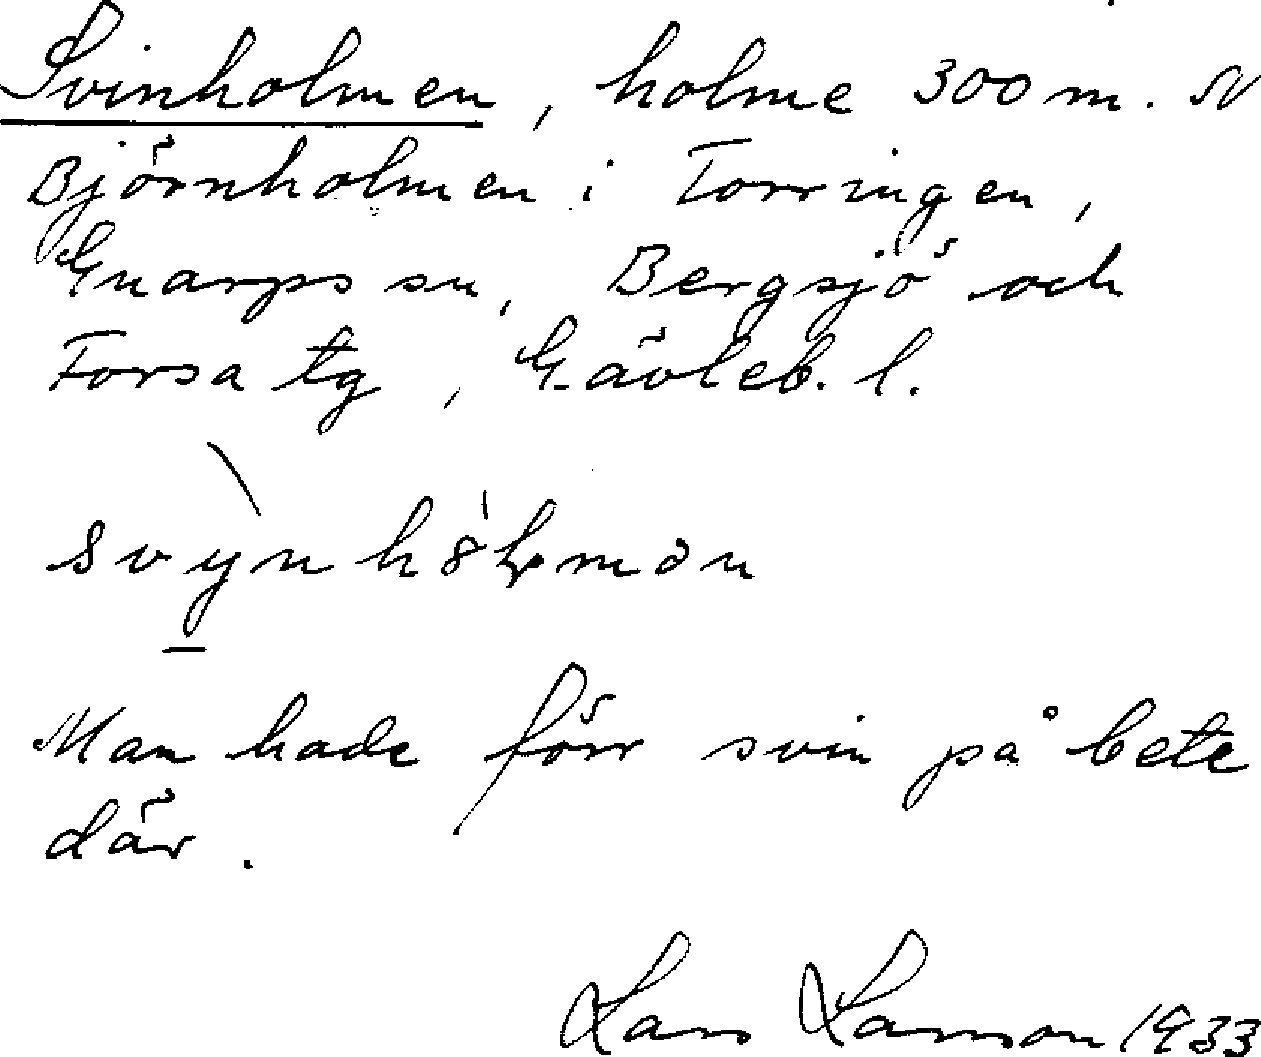 Svinholmen, holme 300 m. N
Björnholmen i Torringen,
Gnarps sn, Bergsjö och
Forsa tg, Gävleb. l.
Man hade förr svin på bete
där.
Lars Larsson 1933